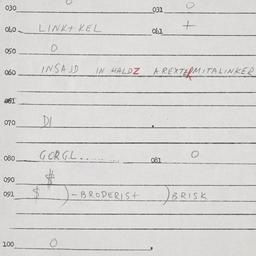 030 0 031 0
040 LINK+KEL 041 +
050 0
060 INSAJD IN HALDZ AREXTERMITALINKER
051
070 DI
080 GORGL....... 081 0
090 $
091 $ )-BRODERIST )BRISK
100 0